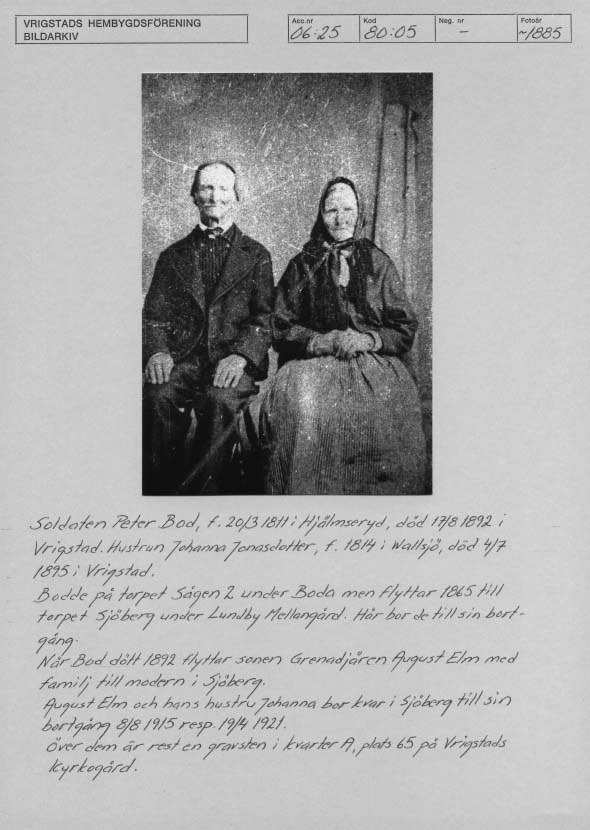 VRIGSTADS HEMBYGDSFÖRENING
BILDARKIV
Acc.nr
06:25
Kod
80:05
Neg. nr
-
Fotoår
~1885
Soldaten Peter Bod, f. 20/3 1811 i Hjälmseryd, död 17/8 1892 i
Vrigstad. Hustrun Johanna Jonasdotter, f. 1814 i Wallsjö, död 4/7
1895 i Vrigstad.
Bodde på torpet Sågen 2 under Boda men flyttar 1865 till
torpet Sjöberg under Lundby Mellangård. Här bor de till sin bort-
gång.
När Bod dött 1892 flyttar sonen Grenadjären August Elm med
familj till modern i Sjöberg.
August Elm och hans hustru Johanna bor kvar i Sjöberg till sin
bortgång 8/8 1915 resp. 19/4 1921.
Över dem är rest en gravsten i kvarter A, plats 65 på Vrigstads
Kyrkogård.